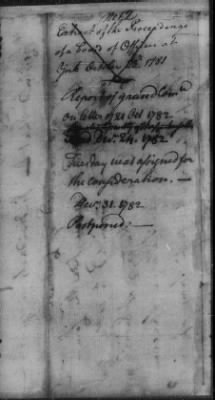 No 2
Extract of the Proceedings
of a Board of Officers at
York October 1781
Report of grand Comee
On letter of 21 Oct 1782
Decr. 24. 1782
Tuesday was assigned for
the consideration. —
Decr. 31. 1782
Postponed: —